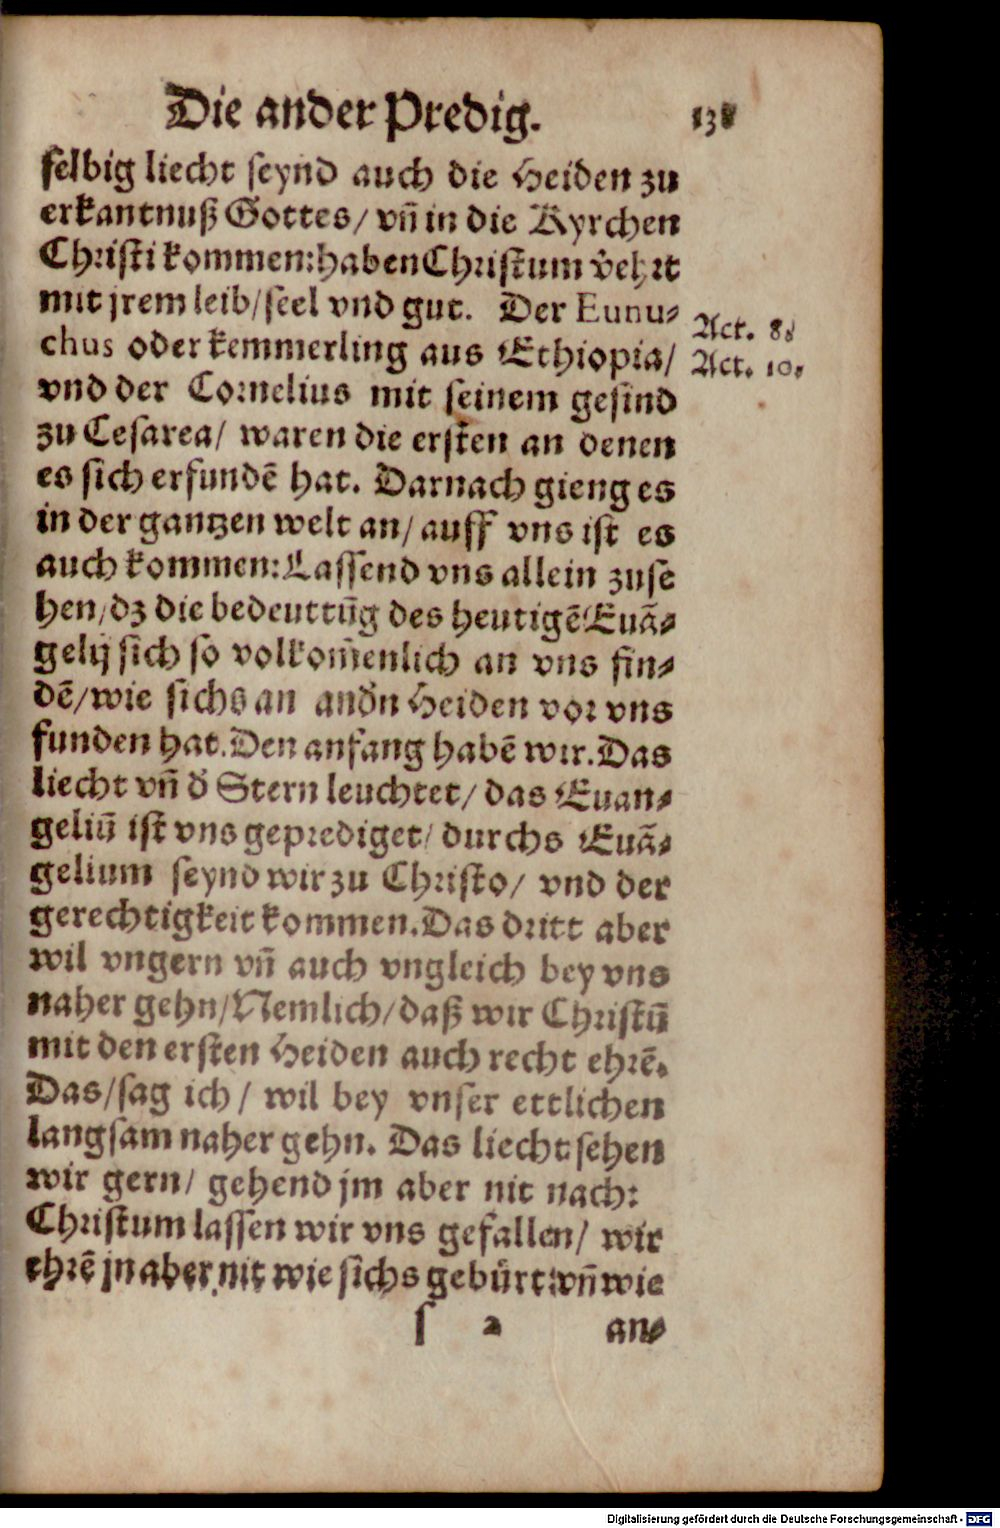 Die ander Predig.
selbig liecht seynd auch die Heiden zu
erkantnuß Gottes/ vñ in die Kyrchen
Christi kommen: haben Christum v̄ehrt
mit jrem leib/ seel vnd gut. Der Eunu⸗
Act. 8.
chus oder kemmerling aus Ethiopia/
Act. 10.
vnd der Cornelius mit seinem gesind
zu Cesarea/ waren die ersten an denen
es sich erfundē hat. Darnach gieng es
in der gantzen welt an/ auff vns ist es
auch kommen: Lassend vns allein zuse
hen/ dz die bedeuttūg des heutigē Euā⸗
gelij sich so volkom̄enlich an vns fin⸗
dē/ wie sichs an and̄n Heiden vor vns
funden hat. Den anfang habē wir. Das
liecht vñ d̄ Stern leuchtet/ das Euan⸗
geliū ist vns geprediget/ durchs Euā⸗
gelium seynd wir zu Christo/ vnd der
gerechtigkeit kommen. Das dritt aber
wil vngern vñ auch vngleich bey vns
naher gehn/ Nemlich/ daß wir Christū
mit den ersten Heiden auch recht ehrē.
Das/ sag ich/ wil bey vnser ettlichen
langsam naher gehn. Das liecht sehen
wir gern/ gehend jm aber nit nach:
Christum lassen wir vns gefallen/ wir
ehrē jn aber nit wie sichs gebürt: vñ wie
s 2 an⸗
Digitalisierung gefördert durch die Deutsche Forschungsgemeinschaft - DFG